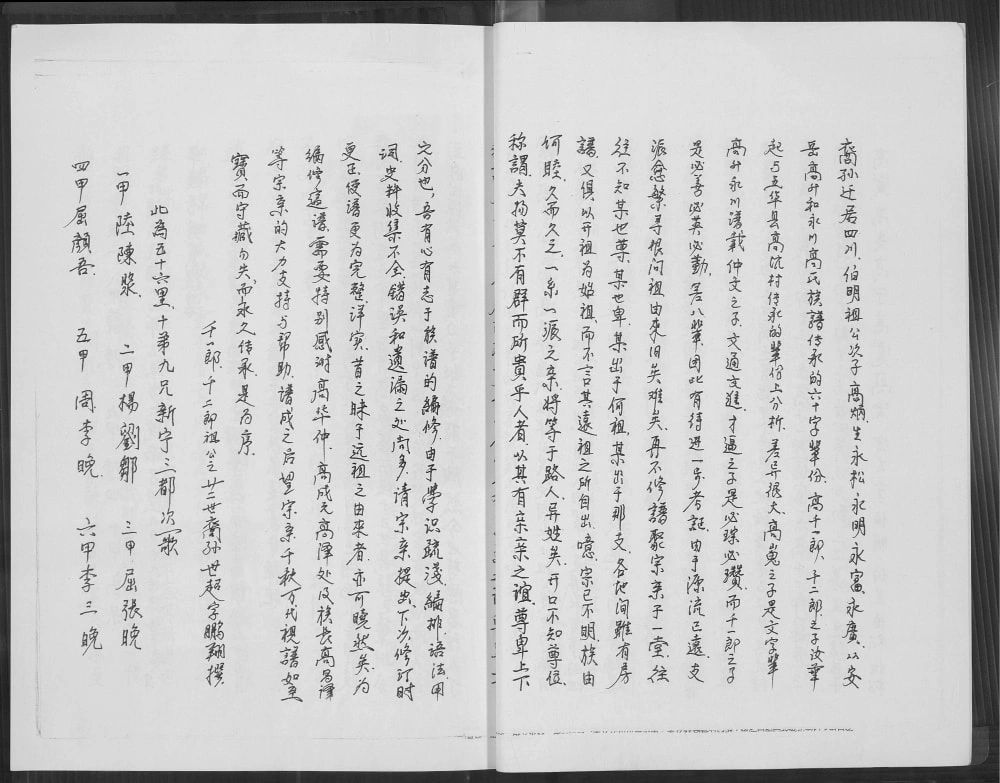 裔孙迁居四川、伯明祖公次子高炳生永松、永明、永富、永廣、以安
岳高升和永川高氏族譜传承的六十字輩份、高千一郎、十二郎之子汝
起与五华县高坑村传承的輩份上分析、差异很大、高嵬之子是文字輩
高升永川谱载仲文之子、文通文進、才通之子是必璨必瓚、而千一郎之子
是必善必英必勤、差八輩、因此有待進一步考証、由于源流已遠、支
派愈繁寻根问祖由來旧矣难矣、再不修譜聚宗亲于一堂、往
往不知某也尊、某也卑、某出于何祖、某出于那支、各地间雖有房
譜、又俱以开祖为始祖、而不言其遠祖之所自出、噫、宗已不明、族由
何睦、久而久之、一系一派之亲、将等于路人、异姓矣、开口不知尊位、
称謂、夫扬莫不有群而所貴乎人者、以其有亲亲之谊、尊卑上下
之分也、吾有心有志于族谱的编修、由于學识疏淺、编排、语法用
词、史料收集不全、错误和遺漏之处尚多、请宗亲提出、下次修订时
更正、使谱更为完整、详实、昔之昧于远祖之由來者、亦可曉然矣、为
编修這譜、需要特别感谢高华仲、高成元、高泽处及族長高昌譯
等宗亲的大力支持与帮助、谱成之后望宗亲千秋万代視譜如至
寶而守藏勿失、而永久传承、是为序、
千一郎、千二郎祖公之廿二世裔孙世超字鵬翔撰
此为五十六里、十第九兄新宁三都次歌
一甲 陸陳 二甲 楊劉鄒 三甲 屈張晚
四甲 屈顏吾 五甲 周李晚 六甲 李三晚